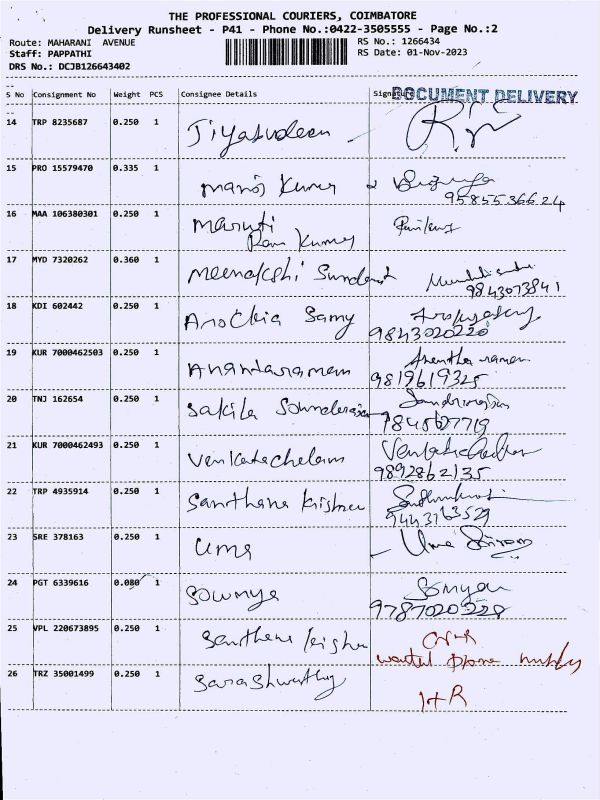 THE PROFESSIONAL COURIERS, COIMBATORE
Delivery Runsheet - P41 - Phone No.:0422-3505555 - Page No.:2
Route: MAHARANI AVENUE RS No.: 1266434
Staff: PAPPATHI RS Date: 01-Nov-2023
DRS No.: DCJB126643402
DOCUMENT DELIVERY
S No Consignment No Weight PCS Consignee Details
14 TRP 8235687 0.250 1 Jiyatudeen
15 PRO 15579470 0.335 1 manoj Kumar
9585536624
16 MAA 106380301 0.250 1 maruti
Ram Kumar
17 MYD 7320262 0.360 1 meenakshi Sundar
9843073841
18 KDI 602442 0.250 1 Arockia Samy
9843020220
19 KUR 7000462503 0.250 1 Anandaramam
9819619325
20 TNJ 162654 0.250 1 Sakila
21 KUR 7000462493 0.250 1 Venkatachelam Venkatachalam
9892862135
22 TRP 4935914 0.250 1 Santhana Krishna
9443763529
23 SRE 378163 0.250 1 Uma Uma Sriram
24 PGT 6339616 0.080 1 Sowmya Sowmya
9787020228
25 VPL 220673895 0.250 1 Santhana Krishna
wanted phone number
26 TRZ 35001499 0.250 1 Sarashwathy